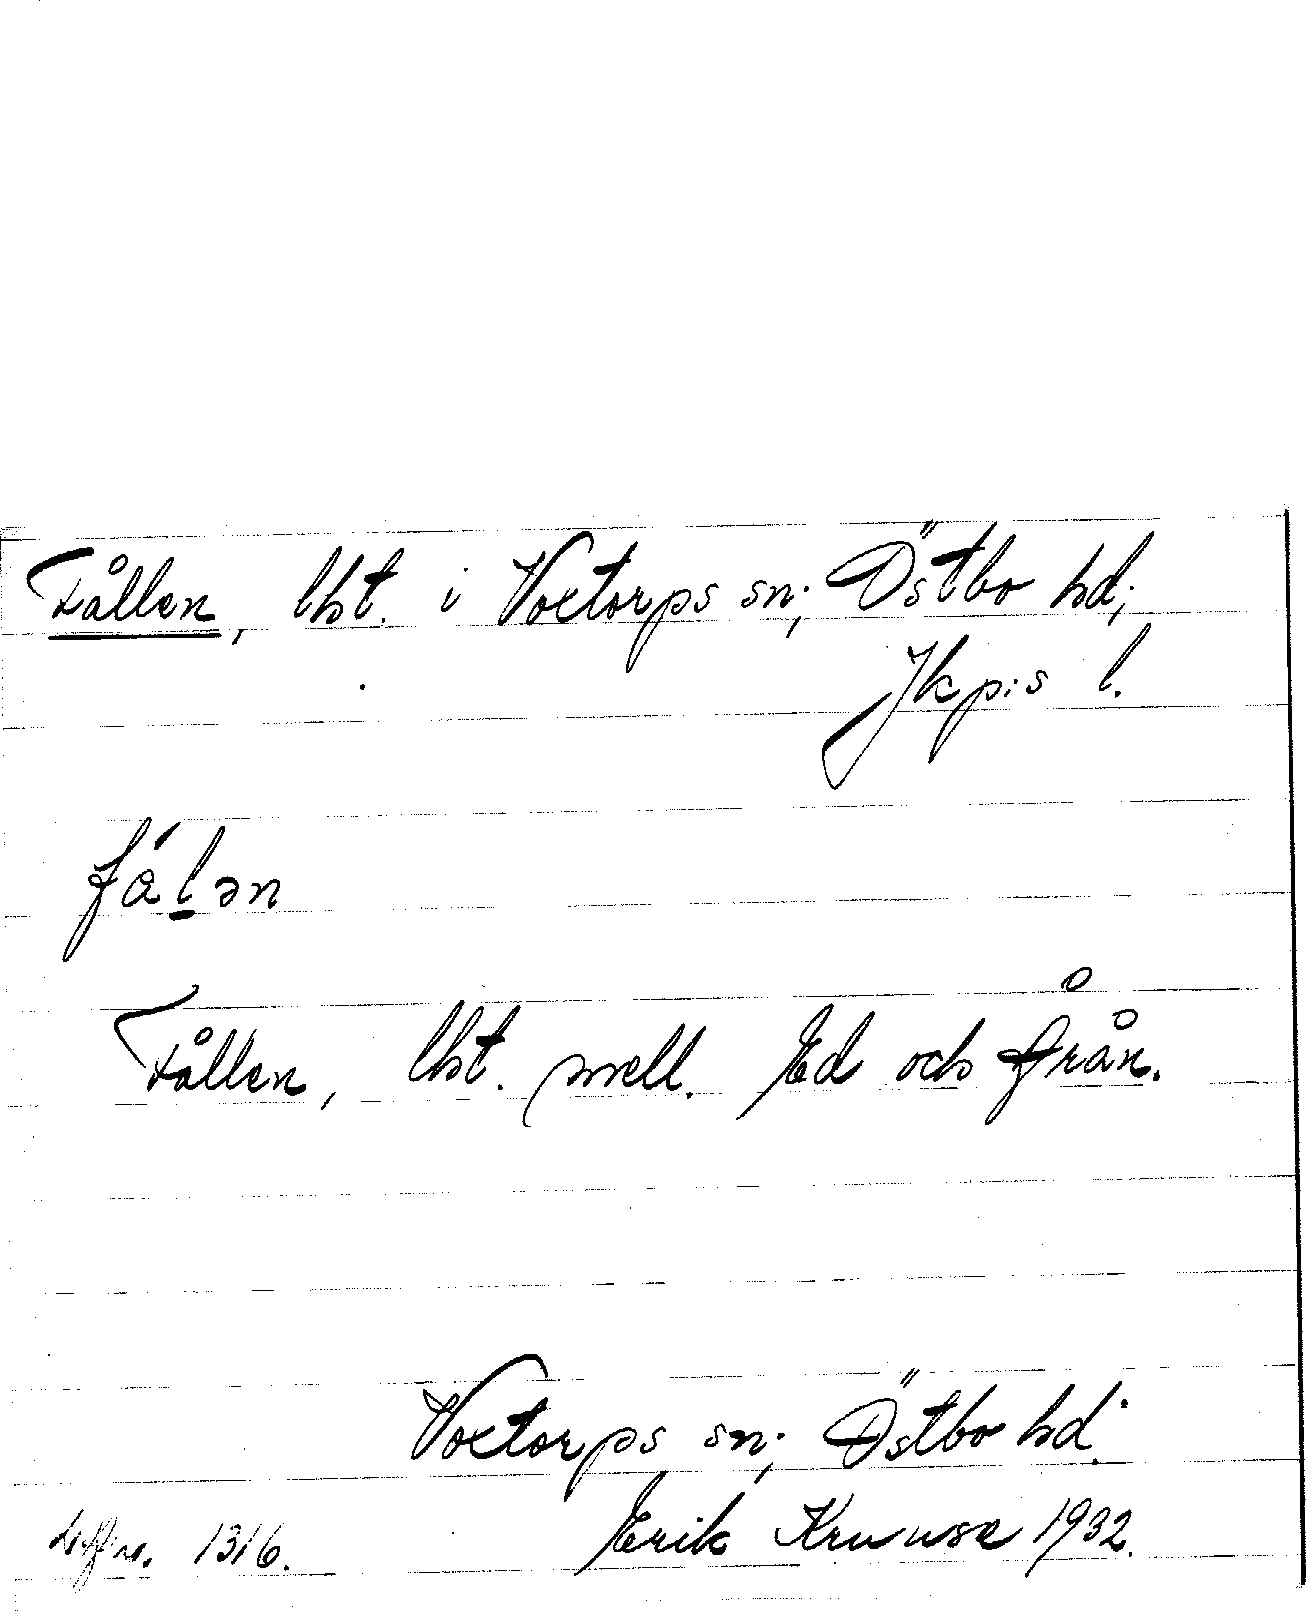 Fållen, lht. i Voxtorps sn; Östbo hd;
Jkp:s l.
fålən
Fållen, lht. mell. Ed och Från.
Voxtorps sn; Östbo hd.
nr. 1316. Erik Kruuse 1932.